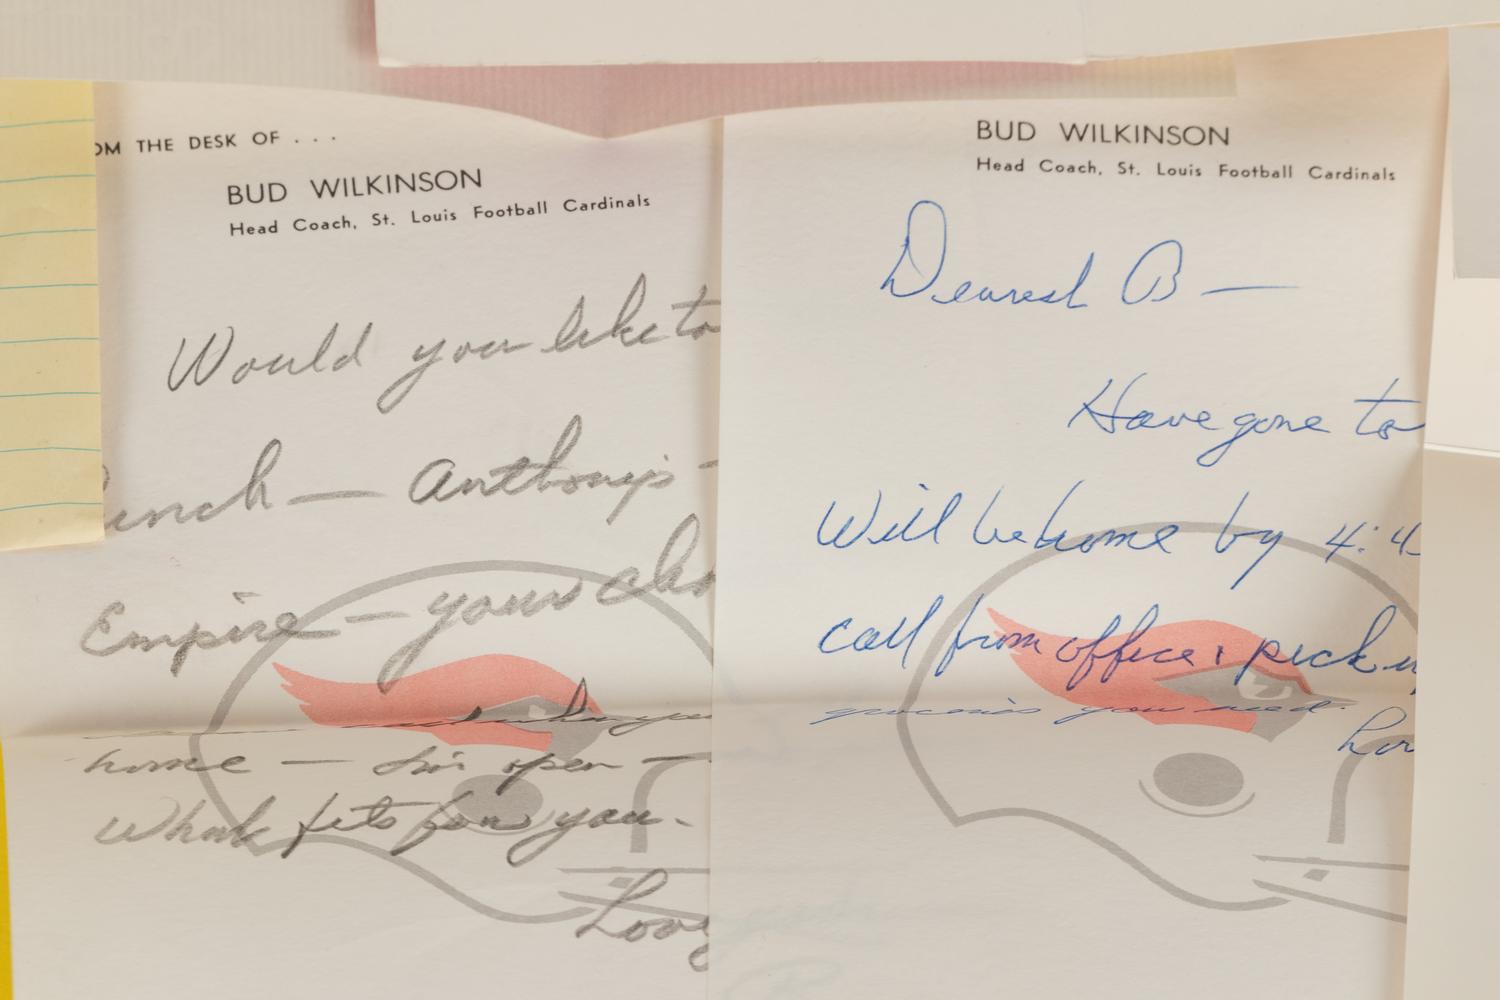 OM THE DESK OF . . .
BUD WILKINSON
Head Coach, St. Louis Football Cardinals
Would you like to
unch — Anthony's -
Empire — your cho
when you
home — open —
What fits for you.
Love
BUD WILKINSON
Head Coach, St. Louis Football Cardinals
Dearest B —
Have gone to
Will be home by 4:4
call from office & pick u
groceries you need.
Lov